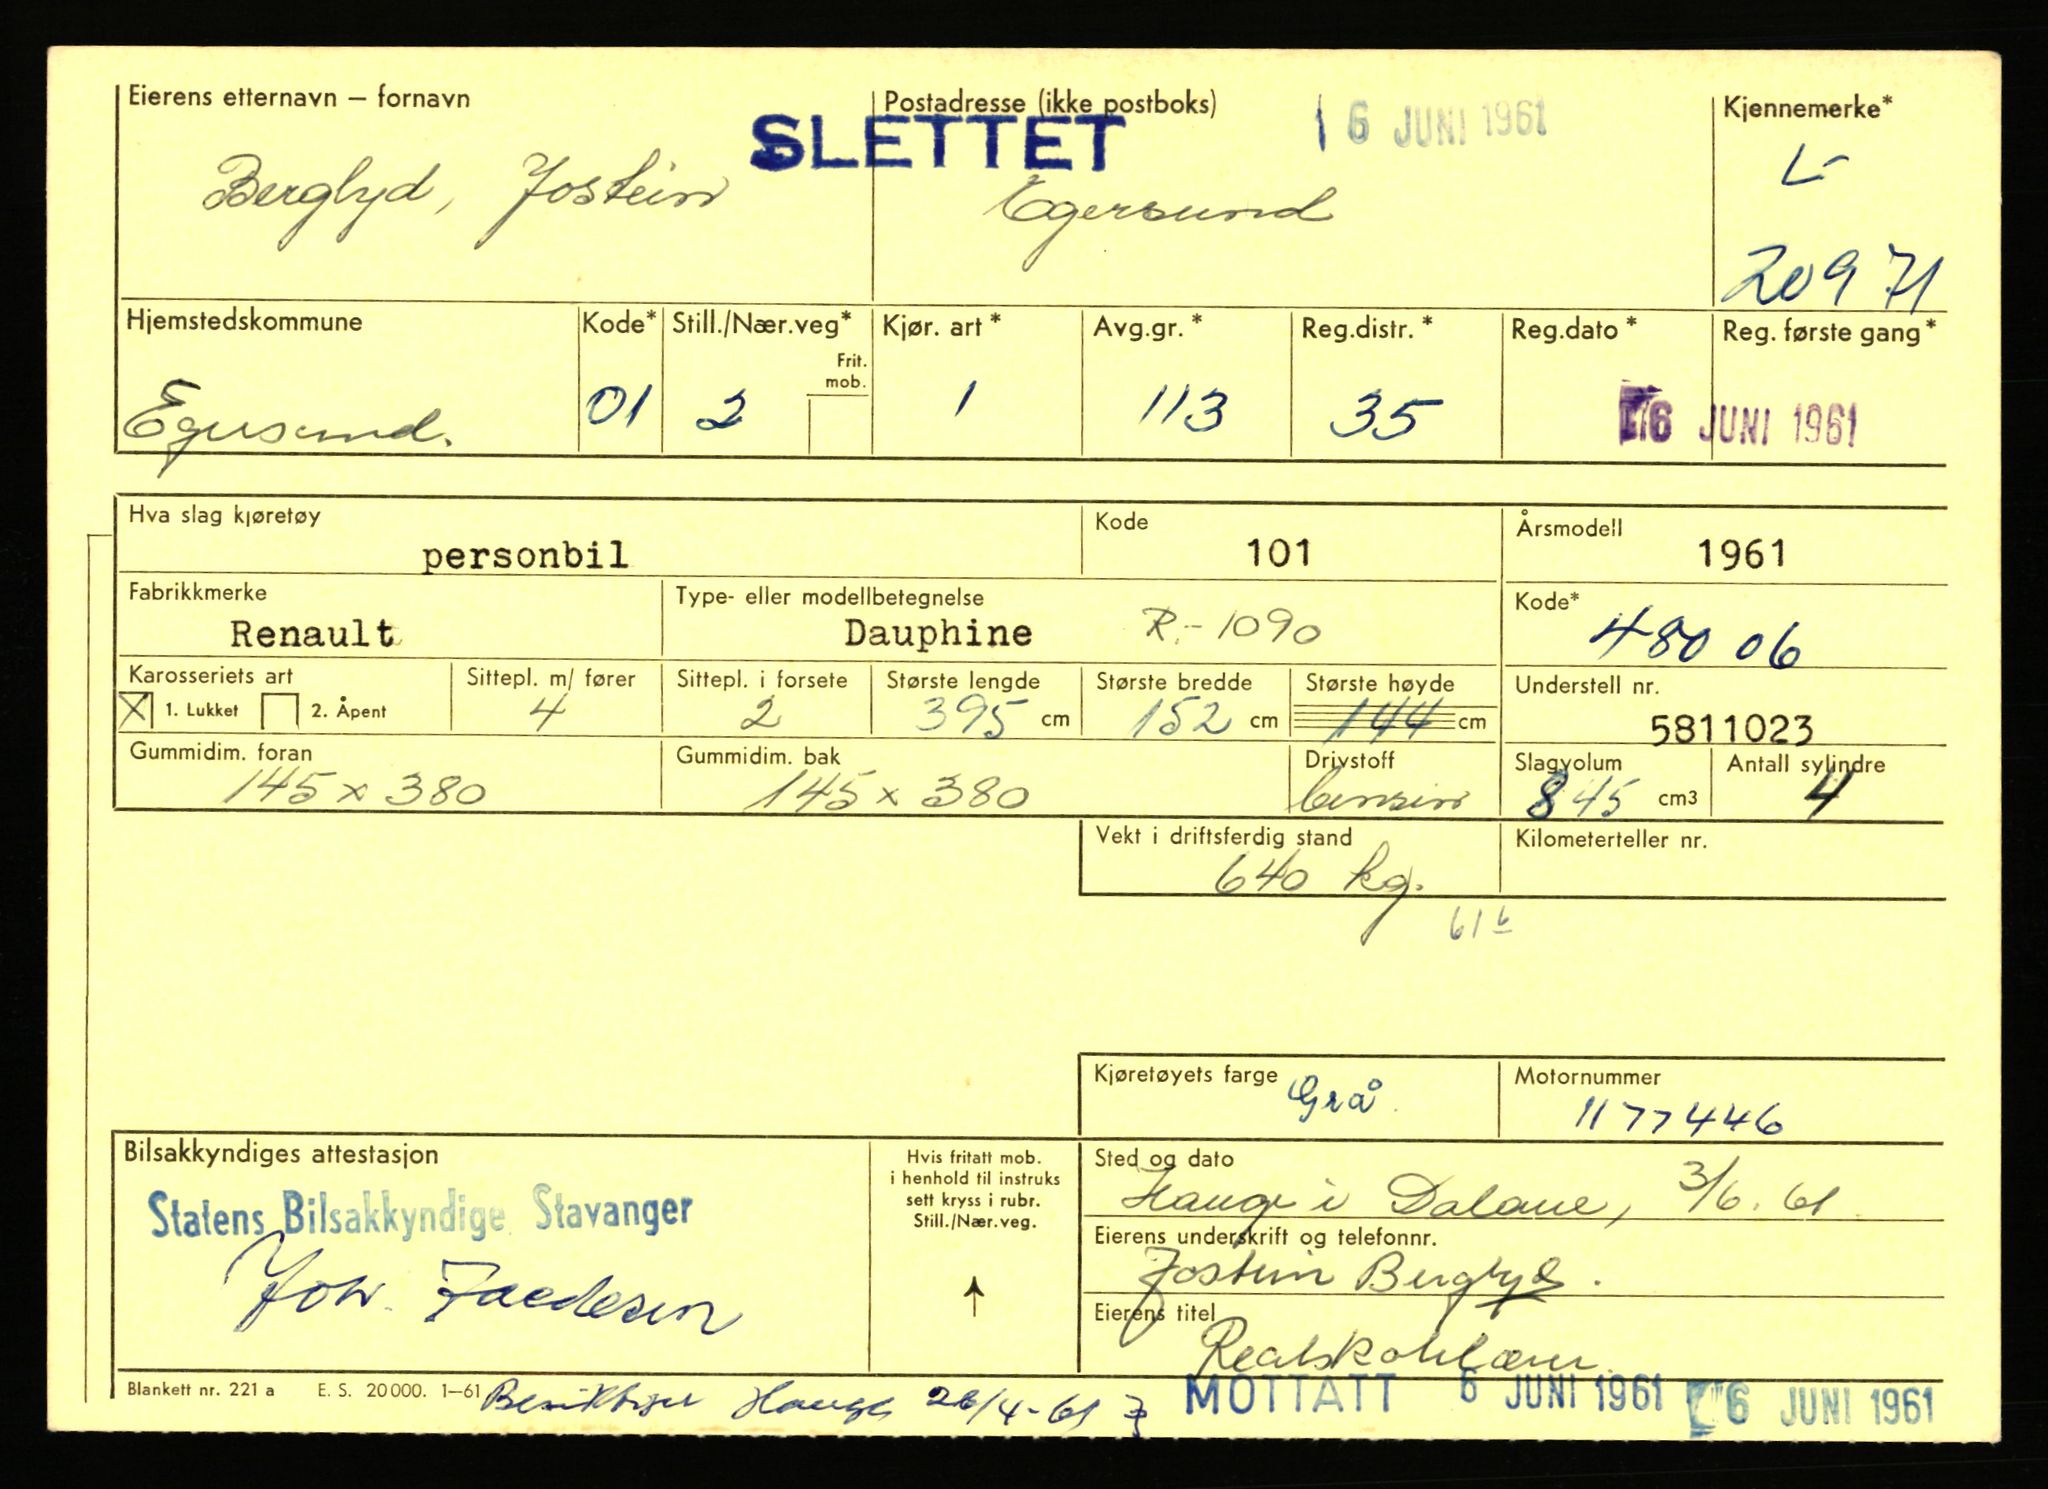 Eierens etternavn — fornavn
Postadresse (ikke postboks)
16 JUNI 1961
Kjennemerke*
SLETTET
Berglyd, Jostein
Egersund
L-
20971
Hjemstedskommune
Kode*
Still./Nær.veg*
Frit. mob.
Kjør. art *
Avg.gr. *
Reg.distr. *
Reg.dato *
Reg. første gang *
Egersund.
01
2
1
113
35
6 JUNI 1961
Hva slag kjøretøy
personbil
Kode
101
Årsmodell
1961
Fabrikkmerke
Renault
Type- eller modellbetegnelse
Dauphine R.-1090
Kode*
480 06
Karosseriets art
1. Lukket
2. Åpent
Sittepl. m/ fører
4
Sittepl. i forsete
2
Største lengde
395 cm
Største bredde
152 cm
Største høyde
144 cm
Understell nr.
5811023
Gummidim. foran
145 x 380
Gummidim. bak
145 x 380
Drivstoff
bensin
Slagvolum
845 cm3
Antall sylindre
4
Vekt i driftsferdig stand
640 kg.
Kilometerteller nr.
61 6
Kjøretøyets farge
Grå
Motornummer
1177446
Bilsakkyndiges attestasjon
Statens Bilsakkyndige Stavanger
Hvis fritatt mob.
i henhold til instruks
sett kryss i rubr.
Still./Nær.veg.
Sted og dato
Hauge i Dalane, 3/6. 61
Eierens underskrift og telefonnr.
Jostein Berglyd.
Eierens titel
Realskolelærer.
Blankett nr. 221 a E. S. 20000. 1—61
Hauge 26/4-61
MOTTATT 6 JUNI 1961
6 JUNI 1961